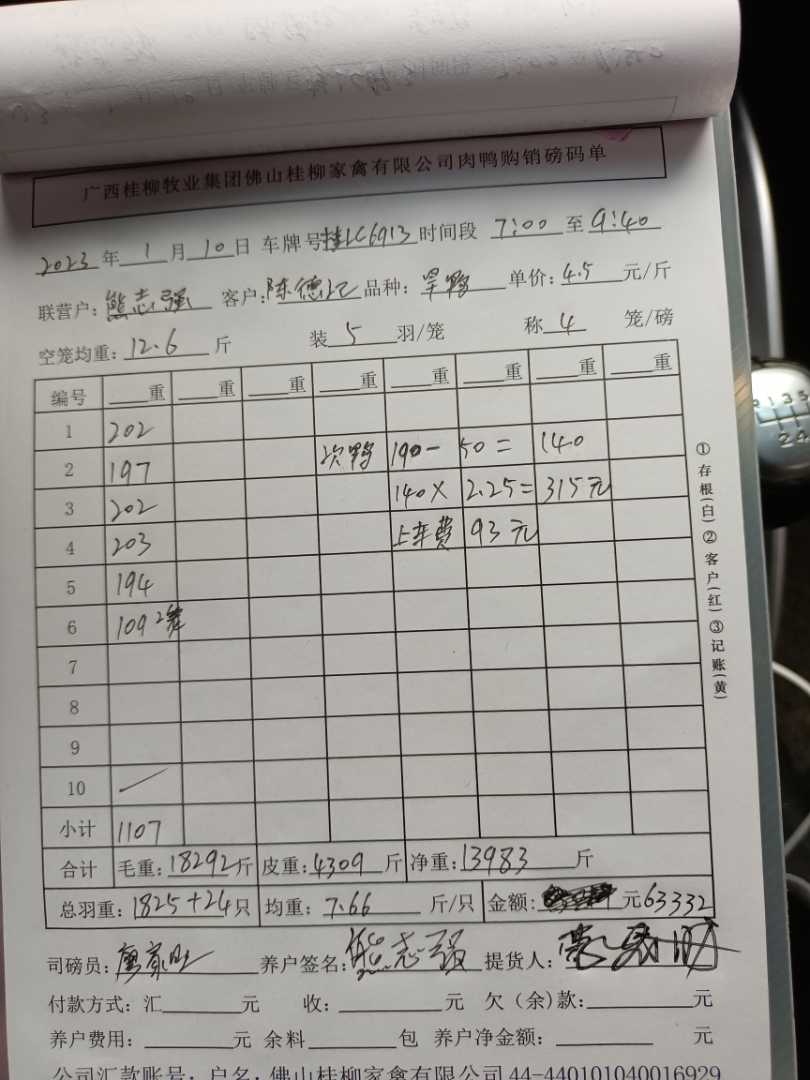 广西桂柳牧业集团佛山桂柳家禽有限公司肉鸭购销磅码单
2023年1月10日 车牌号桂LC6913时间段 7:00 至9:40
联营户:熊志强 客户:陈德记 品种:旱鸭 单价:4.5元/斤
空笼均重:12.6斤 装5羽/笼 称4笼/磅
编号 重 重 重 重 重 重 重 重
1 202
2 197 次鸭 190- 50= 140
3 202 140× 2.25= 315元
4 203 上车费 93元
5 194
6 109 2笼
7
8
9
10
小计 1107
合计 毛重:18292斤 皮重:4309斤 净重:13983斤
总羽重:1825+24只 均重:7.66斤/只 金额:元63332
司磅员: 养户签名:熊志强 提货人:
付款方式:汇元 收:元 欠(余)款:元
养户费用:元 余料包 养户净金额:元
公司汇款账号:户名:佛山桂柳家禽有限公司44-440101040016929
①存根(白)②客户(红)③记账(黄)